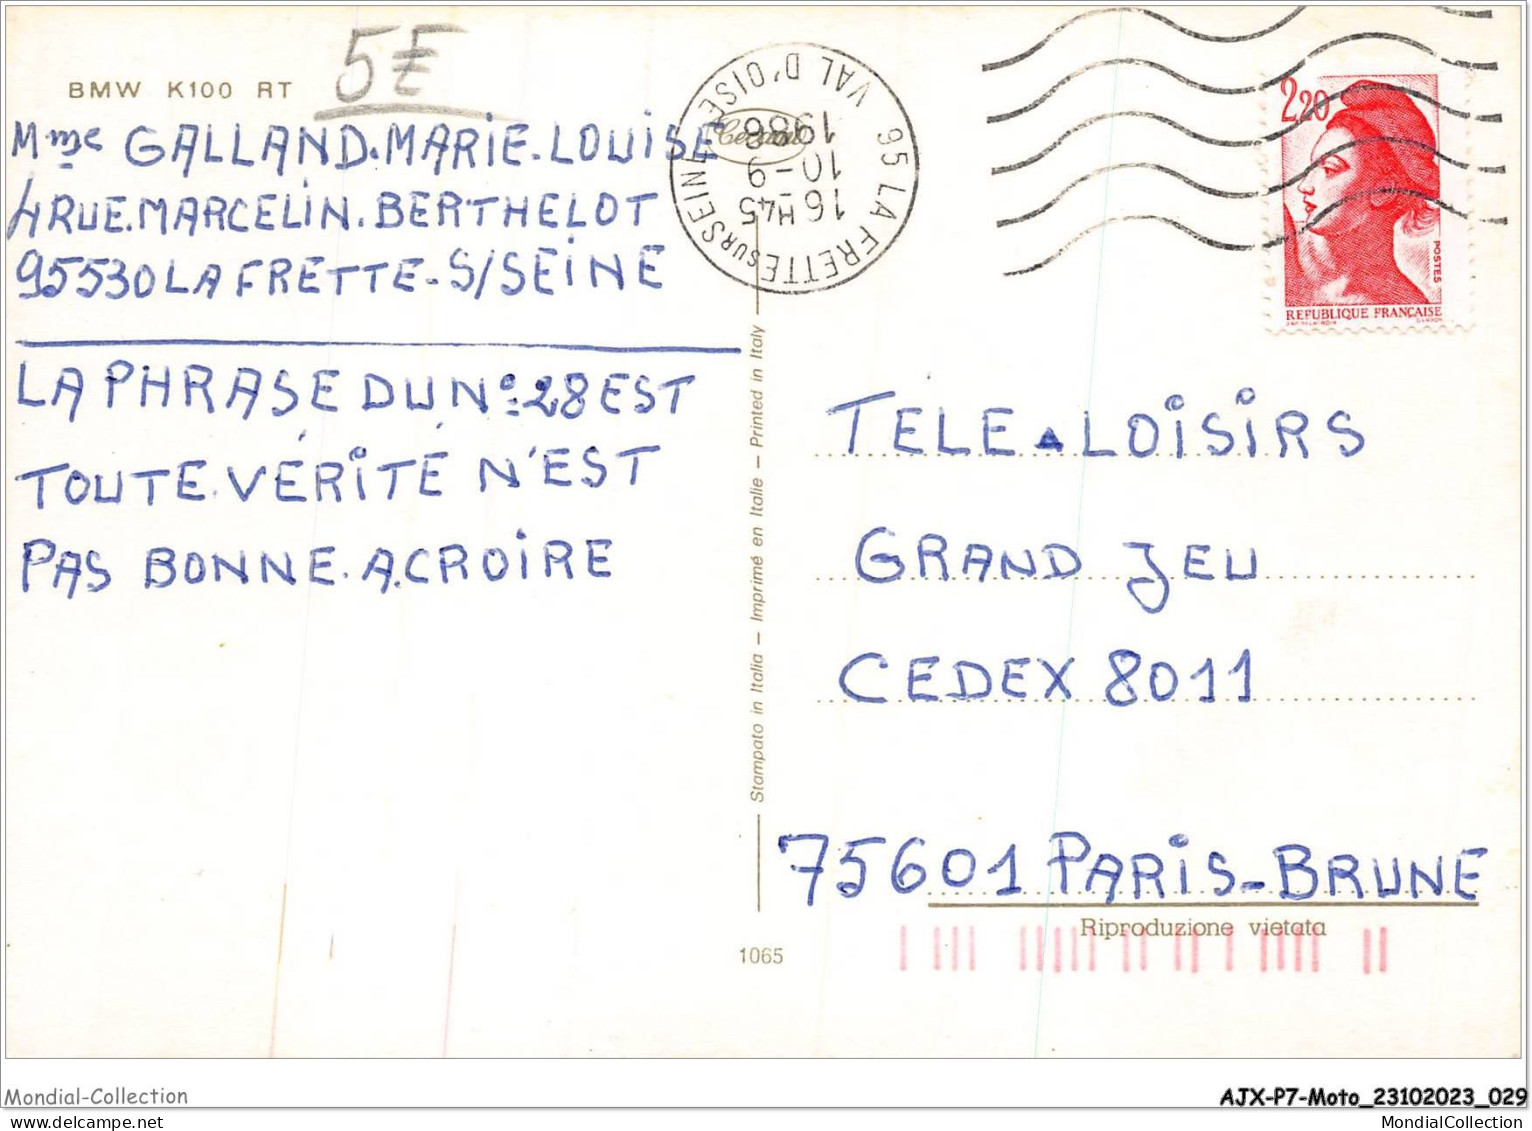 BMW K100 RT
5€
Mme GALLAND.MARIE.LOUISE
4 RUE.MARCELIN.BERTHELOT
95530 LA FRETTE-S/SEINE
LA PHRASE DU N° 28 EST
TOUTE.VÉRITÉ N'EST
PAS BONNE.A.CROIRE
95 LA FRETTE SUR SEINE
VAL D'OISE
16 H45
10-9
1986
2,20
POSTES
REPUBLIQUE FRANÇAISE
TELE-LOISIRS
GRAND JEU
CEDEX 8011
75601 PARIS-BRUNE
Stampato in Italia – Imprimé en Italie – Printed in Italy
Riproduzione vietata
1065
Mondial-Collection
AJX-P7-Moto_23102023_029
MondialCollection